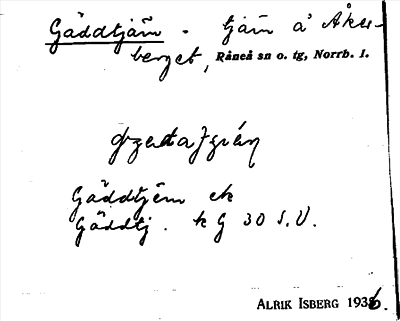 Gäddtjärn - tjärn å Åker-
berget, Råneå sn o. tg, Norrb. l.
Gäddtjärn ek
Gäddtj. k G 30 S.V.
ALRIK ISBERG 1936.